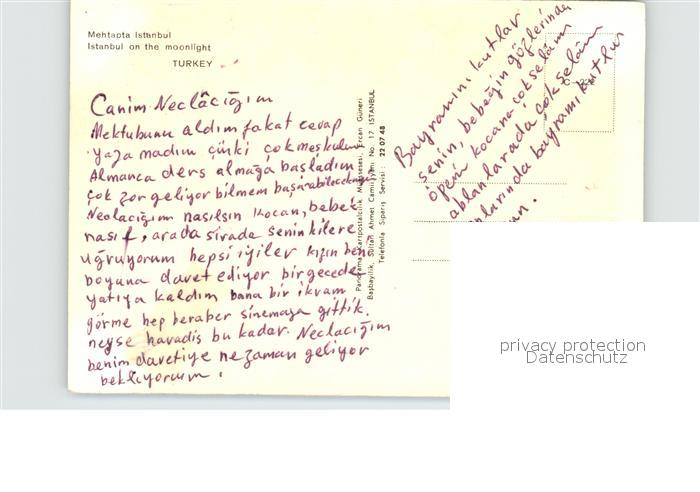 Mehtapta Istanbul
Istanbul on the moonlight
TURKEY
Canim Neclâcığım
Mektubunu aldım fakat cevap
yaza madım çünki çok meşkulum
Almanca ders almağa başladım
çok zor geliyor bilmem başarabilecekmiyim
Neclacığım nasılsın kocan, bebek
nasıl, arada sırada seninkilere
uğruyorum hepsi iyiler kızın beni
boyuna davet ediyor bir gecede
yatıya kaldım bana bir ikram
görme hep beraber sinemaya gittik.
neyse havadis bu kadar. Neclacığım
benim davetiye ne zaman geliyor
bekliyorum.
Panorama Kartpostalcılık Müessesesi, Ercan Güneri
Başbayilik, Sultan Ahmet Camii No. 17 ISTANBUL
Telefonla Sipariş Servisi : 22 07 48
Bayramını kutlar
senin, bebeğin gözlerinden
öperim kocana çok selâm
ablanlarada çok selâm
onlarında bayramı kutlu
olsun.
privacy protection
Datenschutz